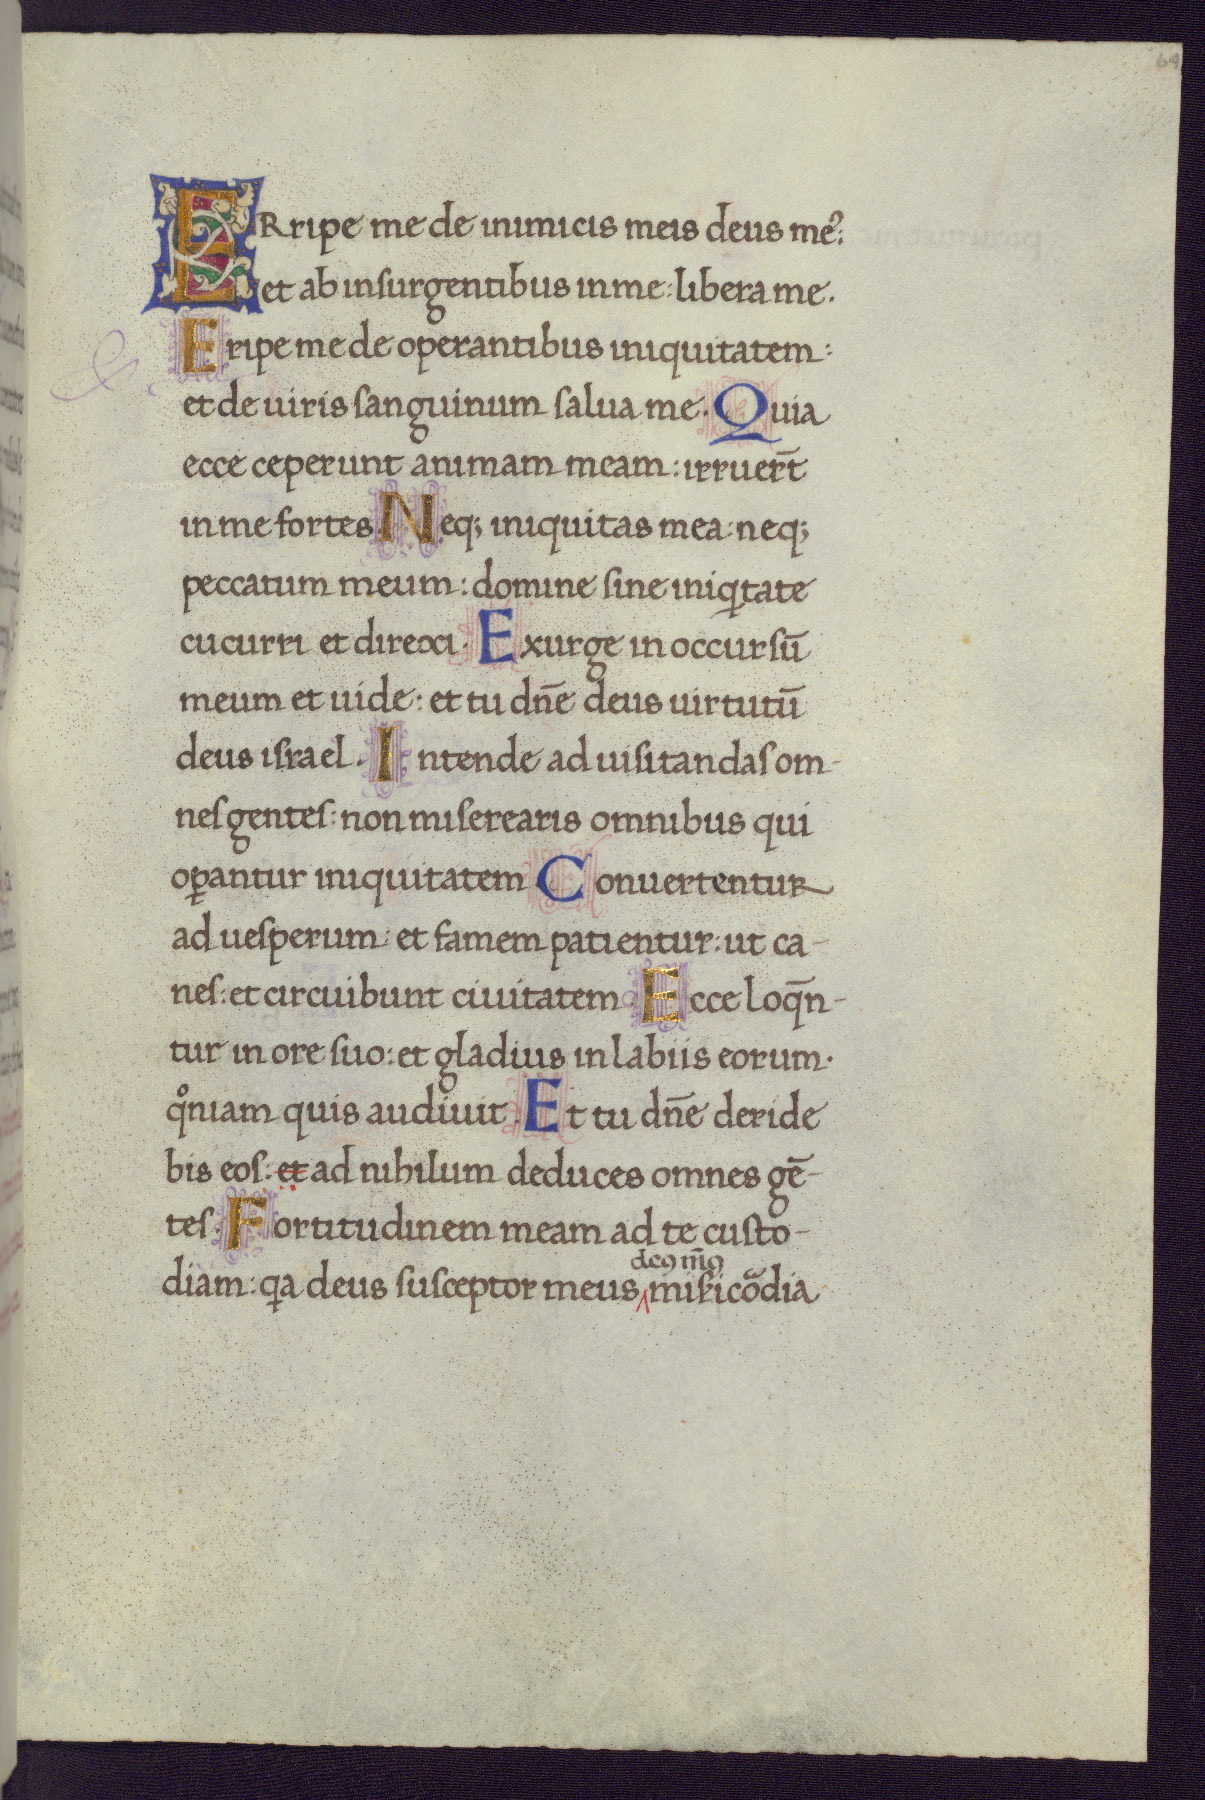 64
ERripe me de inimicis meis deus meꝰ:
et ab inſurgentibus in me: libera me.
Eripe me de operantibus iniquitatem:
et de uiris ſanguinum ſalua me. Quia
ecce ceperunt animam meam: irruer̄t
in me fortes. Neqꝫ iniquitas mea: neqꝫ
peccatum meum: domine ſine iniqͥtate
cucurri et direxi. Exurge in occurſū
meum et uide: et tu dn̄e deus uirtutū
deus iſrael. Intende ad uiſitandaſ om-
neſ genteſ: non miſerearis omnibus qui
oꝑantur iniquitatem. Conuertentur
ad ueſperum: et famem patientur: ut ca-
neſ: et circuibunt ciuitatem. Ecce loqn̄-
tur in ore ſuo: et gladius in labiis eorum.
qͦniam quis audiuit. Et tu dn̄e deride
bis eoſ: et ad nihilum deduces omnes gē-
teſ. Fortitudinem meam ad te cuſto-
deꝰ m̄ꝰ
diam: qͥa deus ſuſceptor meus, miſicōdia